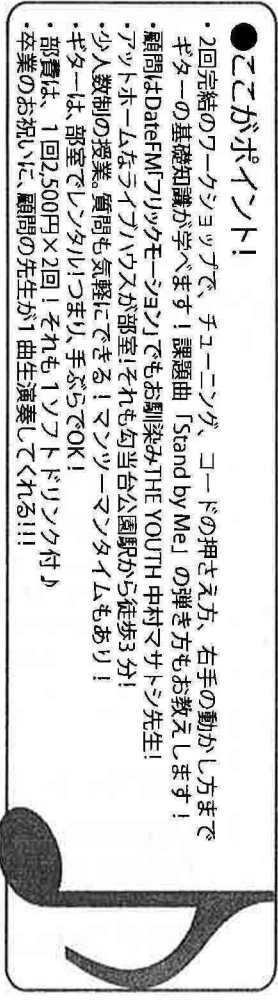 ●ここがポイント!
・2回完結のワークショップで、チューニング、コードの押さえ方、右手の動かし方まで
ギターの基礎知識が学べます!課題曲「Stand by Me」の弾き方もお教えします!
・顧問はDateFM「フリックモーション」でもお馴染みTHE YOUTH 中村マサトシ先生!
・アットホームなライブハウスが部室!それも勾当台公園駅から徒歩3分!
・少人数制の授業。質問も気軽にできる!マンツーマンタイムもあり!
・ギターは、部室でレンタル!つまり、手ぶらでOK!
・部費は、1回2,500円×2回!それも1ソフトドリンク付♪
・卒業のお祝いに、顧問の先生が1曲生演奏してくれる!!!